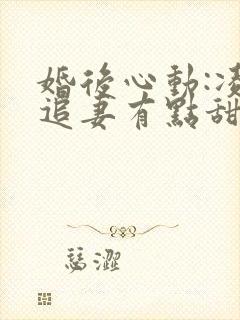 婚後心動:凌
追妻有點甜
瑟澀